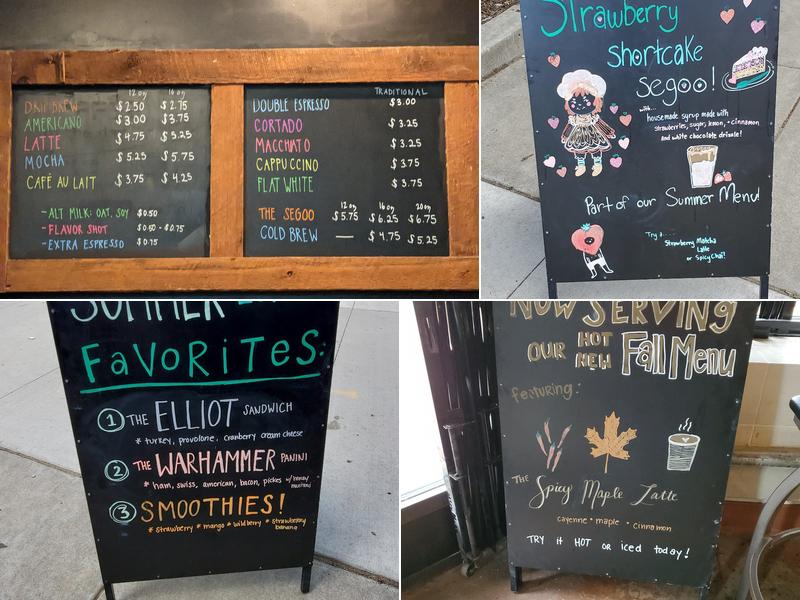 12 oz 16 oz
DRIP BREW $2.50 $2.75
AMERICANO $3.00 $3.75
LATTE $4.75 $5.25
MOCHA $5.25 $5.75
CAFÉ AU LAIT $3.75 $4.25
- ALT MILK: OAT, SOY $0.50
- FLAVOR SHOT $0.50 - $0.75
- EXTRA ESPRESSO $0.75
TRADITIONAL
DOUBLE ESPRESSO $3.00
CORTADO $3.25
MACCHIATO $3.25
CAPPUCCINO $3.75
FLAT WHITE $3.75
12 oz 16 oz 20 oz
THE SEGOO $5.75 $6.25 $6.75
COLD BREW — $4.75 $5.25
Strawberry
shortcake
segoo!
with...
housemade syrup made with
strawberries, sugar, lemon, + cinnamon
and white chocolate drizzle!
Part of our Summer Menu!
Try a......
Strawberry Matcha
Latte
or Spicy Chai!
SUMMER
FAVORITES:
1 THE ELLIOT SANDWICH
* turkey, provolone, cranberry cream cheese
2 THE WARHAMMER PANINI
* ham, swiss, american, bacon, pickes w/ honey
mustard
3 SMOOTHIES!
* strawberry * mango * wildberry * strawberry
banana
NOW SERVING
OUR HOT NEW Fall Menu
featuring:
THE Spicy Maple Latte
cayenne • maple • cinnamon
TRY it HOT OR iced today!